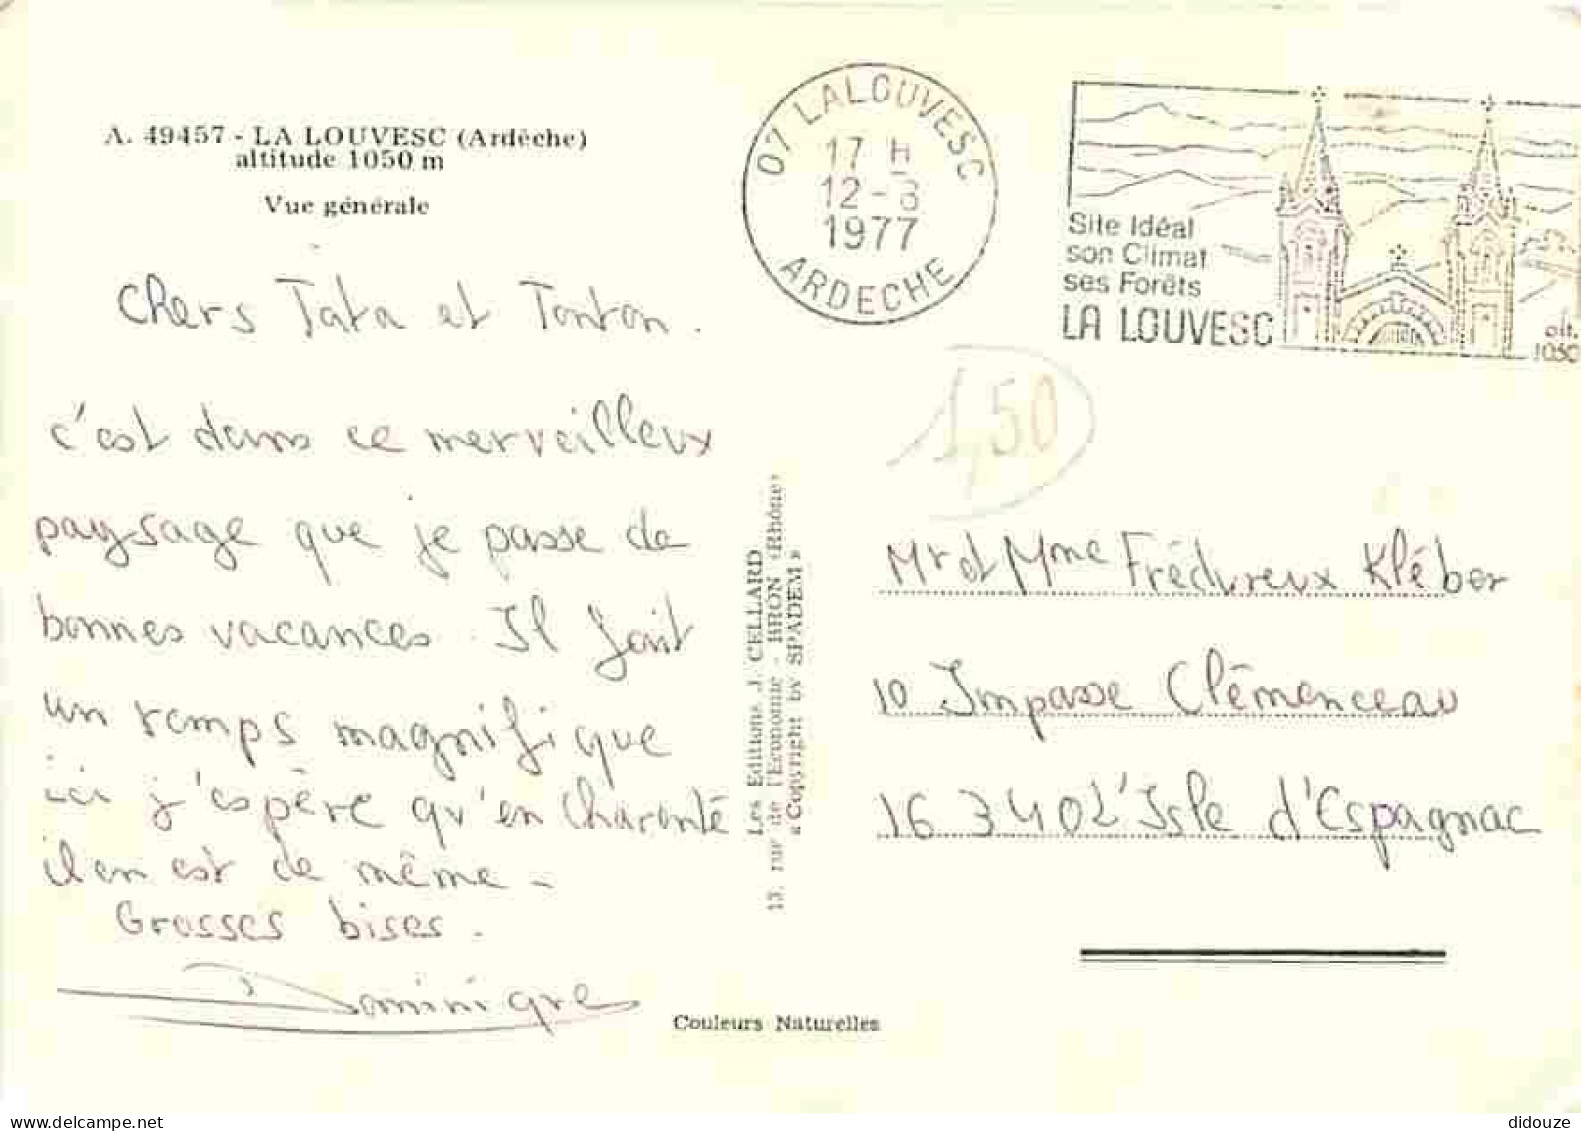 A. 49457 - LA LOUVESC (Ardèche)
altitude 1050 m
Vue générale
07 LALOUVESC
17 H
12-8
1977
ARDECHE
Site Idéal
son Climat
ses Forêts
LA LOUVESC
alt.
1050
Chers Tata et Tonton.
c'est dans ce merveilleux
paysage que je passe de
bonnes vacances. Il fait
un temps magnifique
ici j'espère qu'en Charente
il en est de même -
Grosses bises.
Dominique
1,50
Les Editions J. CELLARD
13, rue de l'Economie - BRON (Rhône)
« Copyright by SPADEM »
Mr et Mme Frédureux Kléber
10 Impasse Clémenceau
16340 L'Isle d'Espagnac
Couleurs Naturelles
didouze